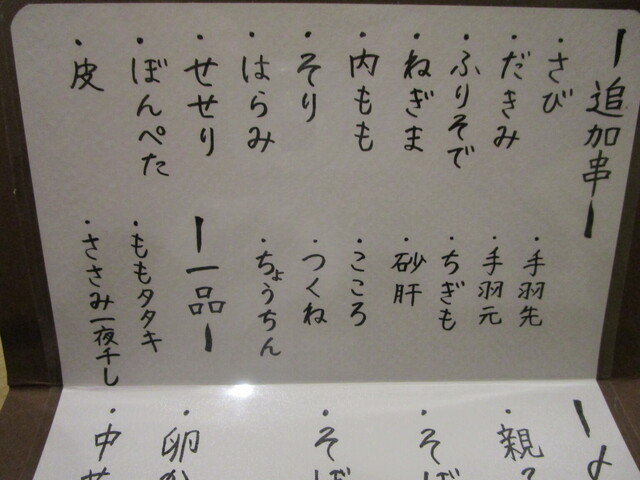 ー追加串ー
・さび
・だきみ
・ふりそで
・ねぎま
・内もも
・そり
・はらみ
・せせり
・ぼんぺた
・皮
・手羽先
・手羽元
・ちぎも
・砂肝
・こころ
・つくね
・ちょうちん
ー一品ー
・ももタタキ
・ささみ一夜干し
・親
・そば
・そば
・卵か
・中